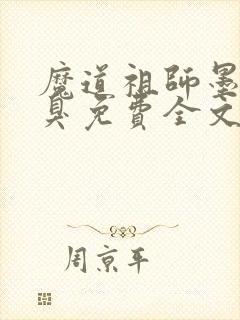 魔道祖师墨
臭免費全文
周京平